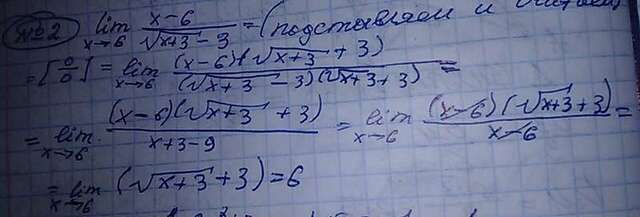 №2 lim x→6 (x-6)/(√(x+3) - 3) = (подставляем и
= [0/0] = lim x→6 ((x-6)(√(x+3) + 3))/((√(x+3) - 3)(√(x+3) + 3)) =
= lim x→6 ((x-6)(√(x+3) + 3))/(x+3-9) = lim x→6 ((x-6)(√(x+3)+3))/(x-6) =
= lim x→6 (√(x+3) + 3) = 6